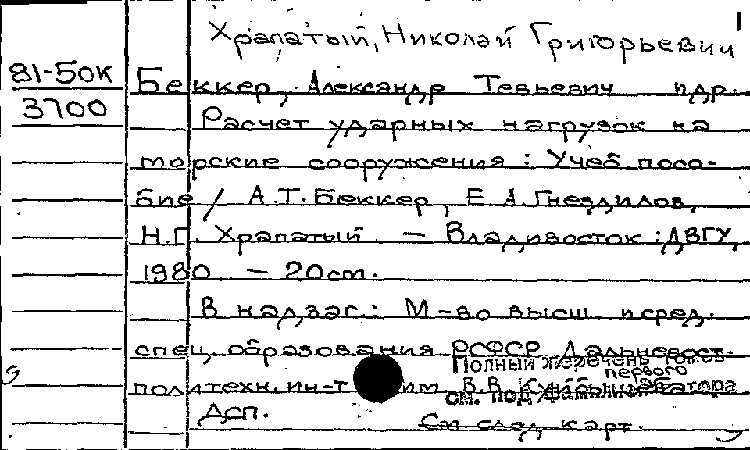 Храпатый, Николай Григорьевич
81-50К
3700
Беккер, Александр Тевьевич и др.
Расчет ударных нагрузок на
морские сооружения : Учеб. посо-
бие / А.Т. Беккер, Е.А. Гнездилов,
Н.Г. Храпатый — Владивосток : ДВГУ,
1980 — 20 см.
В надзаг.: М-во высш. и сред.
спец. образования РСФСР Дальневост.
Полный перечень томов
первого
политехн. ин-т им. В.В. Куйбышева
автора
см. под фамилией
ДСП.
См след карт.